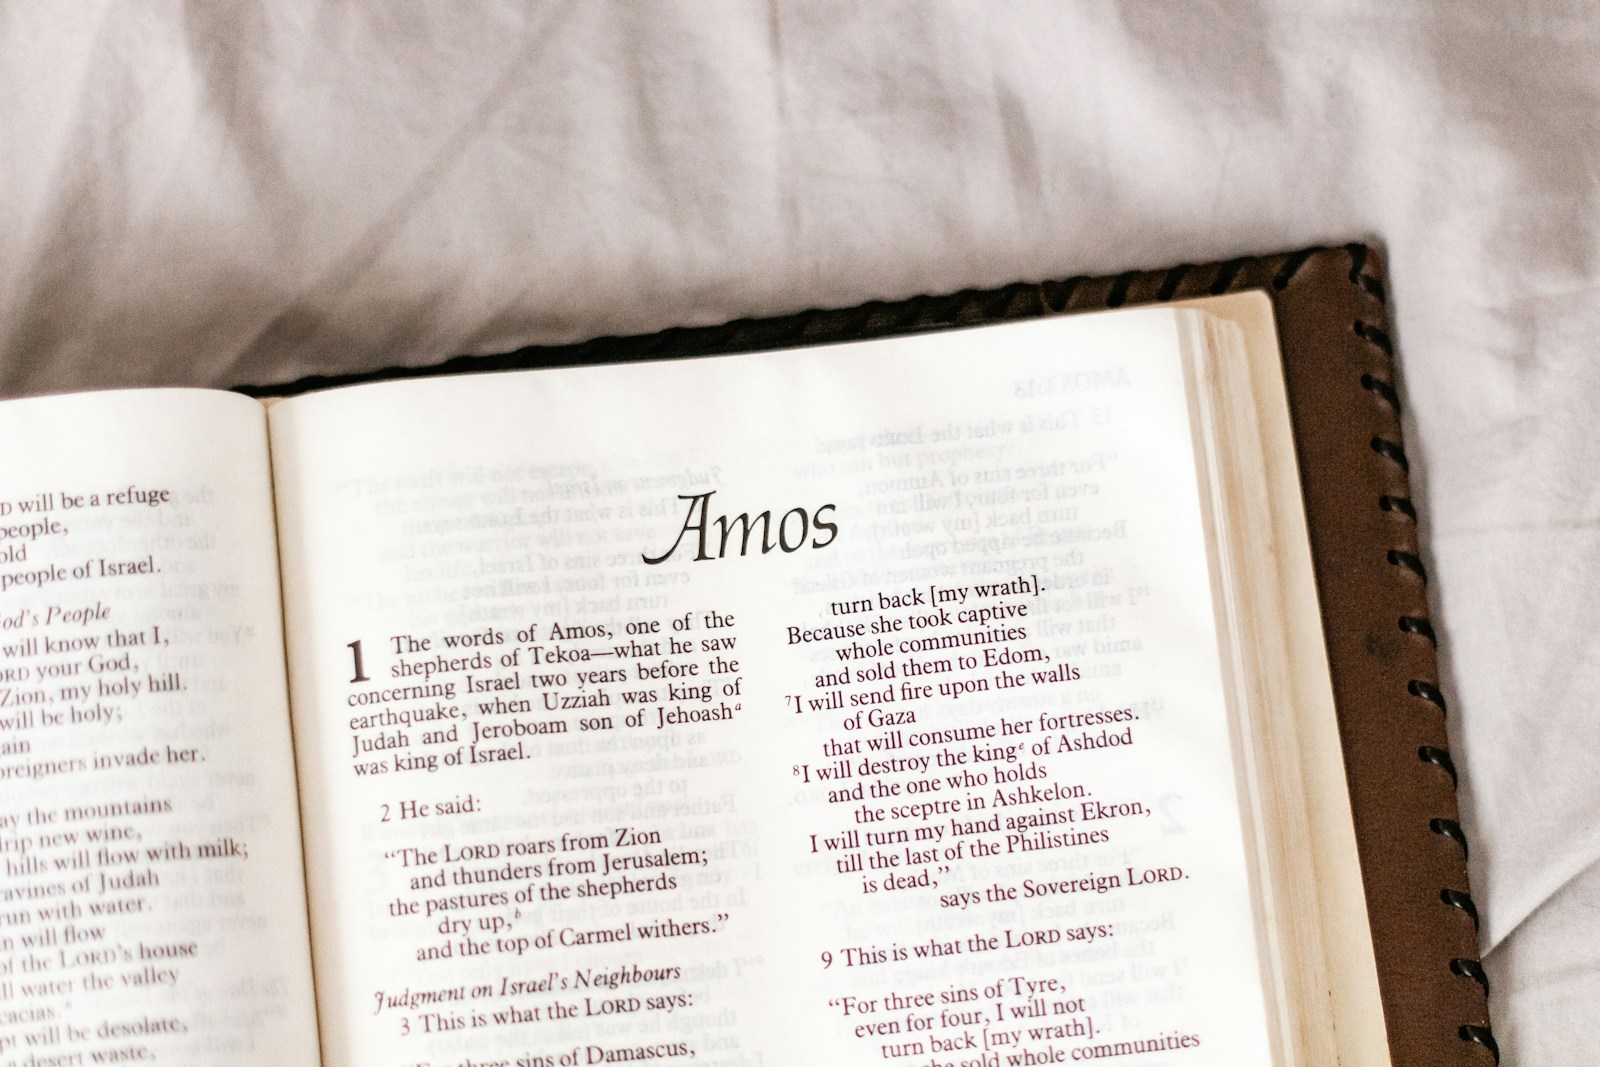 will be a refuge
people,
old
people of Israel.
God's People
will know that I,
LORD your God,
Zion, my holy hill.
will be holy;
foreigners invade her.
the mountains
drip new wine,
hills will flow with milk;
ravines of Judah
run with water.
will flow
of the LORD's house
will water the valley
acacias.
will be desolate,
a desert waste,
Amos
1 The words of Amos, one of the
shepherds of Tekoa—what he saw
concerning Israel two years before the
earthquake, when Uzziah was king of
Judah and Jeroboam son of Jehoash a
was king of Israel.
2 He said:
“The LORD roars from Zion
and thunders from Jerusalem;
the pastures of the shepherds
dry up, b
and the top of Carmel withers.”
Judgment on Israel's Neighbours
3 This is what the LORD says:
“For three sins of Damascus,
turn back [my wrath].
Because she took captive
whole communities
and sold them to Edom,
7 I will send fire upon the walls
of Gaza
that will consume her fortresses.
8 I will destroy the king e of Ashdod
and the one who holds
the sceptre in Ashkelon.
I will turn my hand against Ekron,
till the last of the Philistines
is dead,”
says the Sovereign LORD.
9 This is what the LORD says:
“For three sins of Tyre,
even for four, I will not
turn back [my wrath].
she sold whole communities